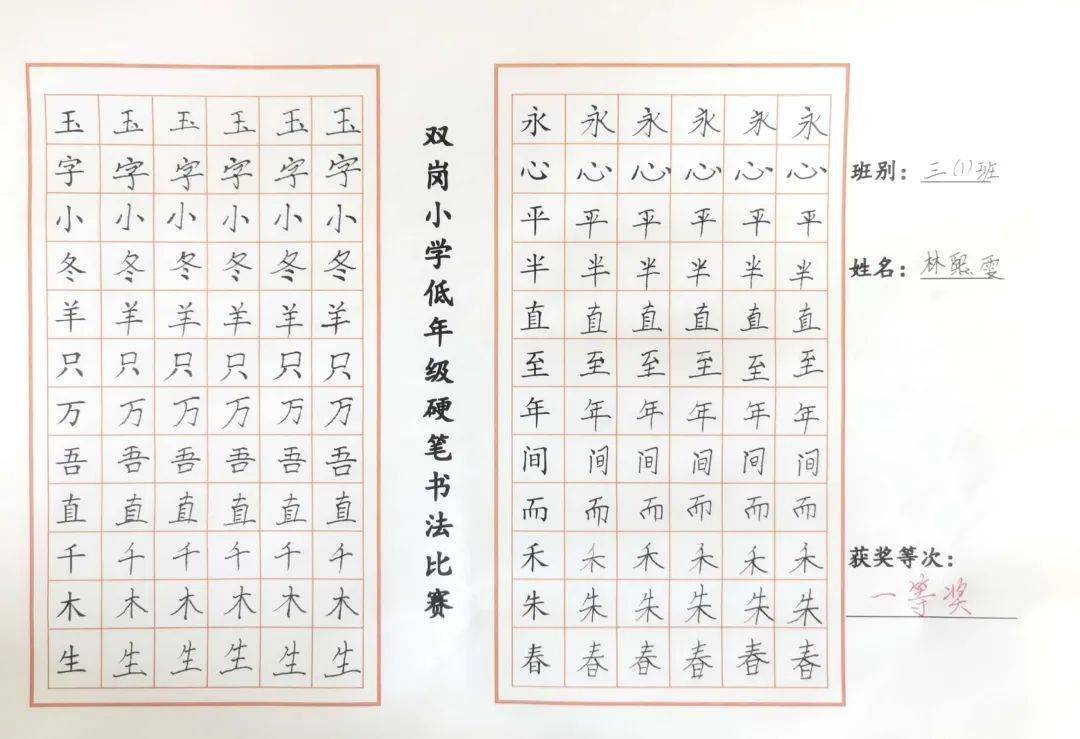 玉 玉 玉 玉 玉 玉
字 字 字 字 字 字
小 小 小 小 小 小
冬 冬 冬 冬 冬 冬
羊 羊 羊 羊 羊 羊
只 只 只 只 只 只
万 万 万 万 万 万
吾 吾 吾 吾 吾 吾
直 直 直 直 直 直
千 千 千 千 千 千
木 木 木 木 木 木
生 生 生 生 生 生
双岗小学低年级硬笔书法比赛
永 永 永 永 永 永
心 心 心 心 心 心
平 平 平 平 平 平
半 半 半 半 半 半
直 直 直 直 直 直
至 至 至 至 至 至
年 年 年 年 年 年
间 间 间 间 间 间
而 而 而 而 而 而
禾 禾 禾 禾 禾 禾
朱 朱 朱 朱 朱 朱
春 春 春 春 春 春
班别：三(1)班
姓名：林熙雯
获奖等次：
一等奖